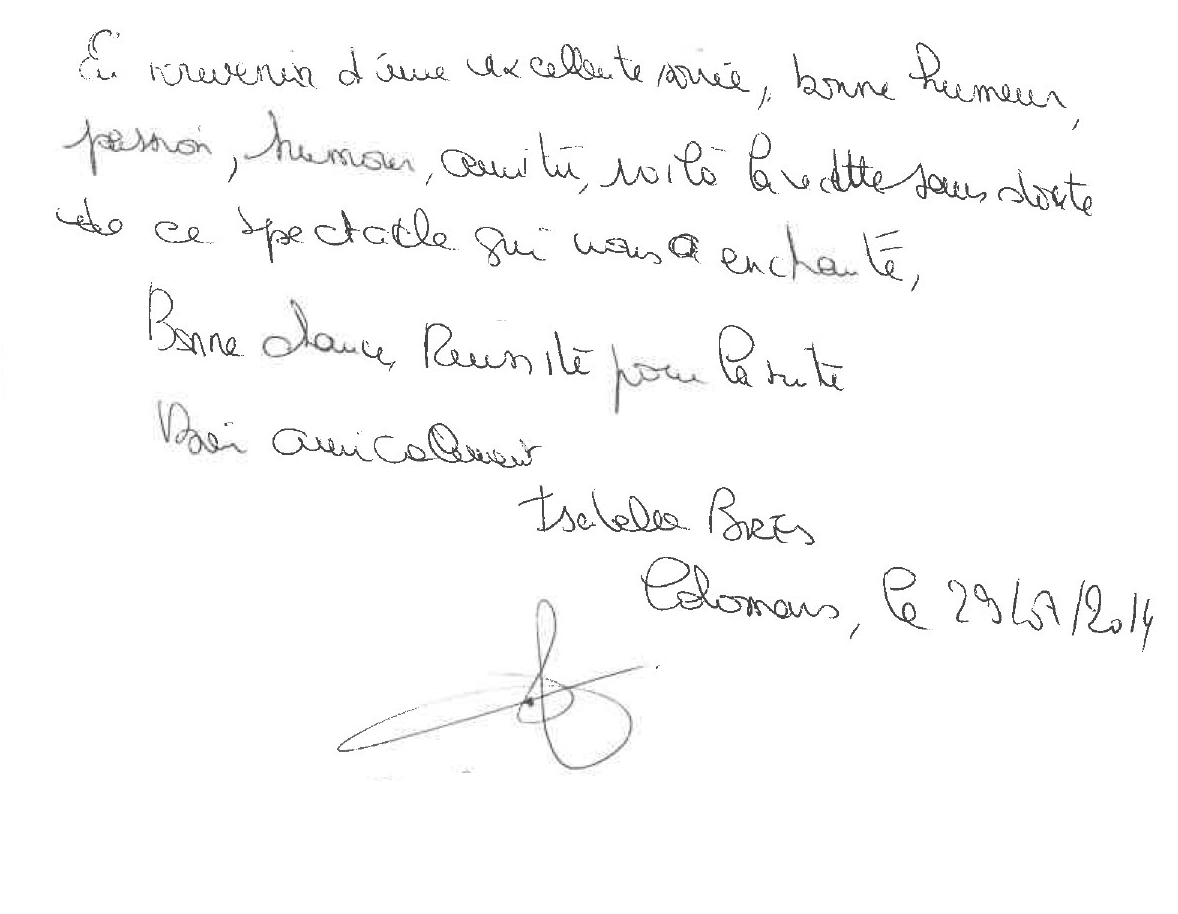 En souvenir d'une excellente soirée, bonne humeur,
passion, humour, amitié, voilà la recette sans doute
de ce spectacle qui nous a enchanté,
Bonne chance, Réussite pour la suite
Bien amicalement
Isabelle BRES
Colomars, le 29/07/2014